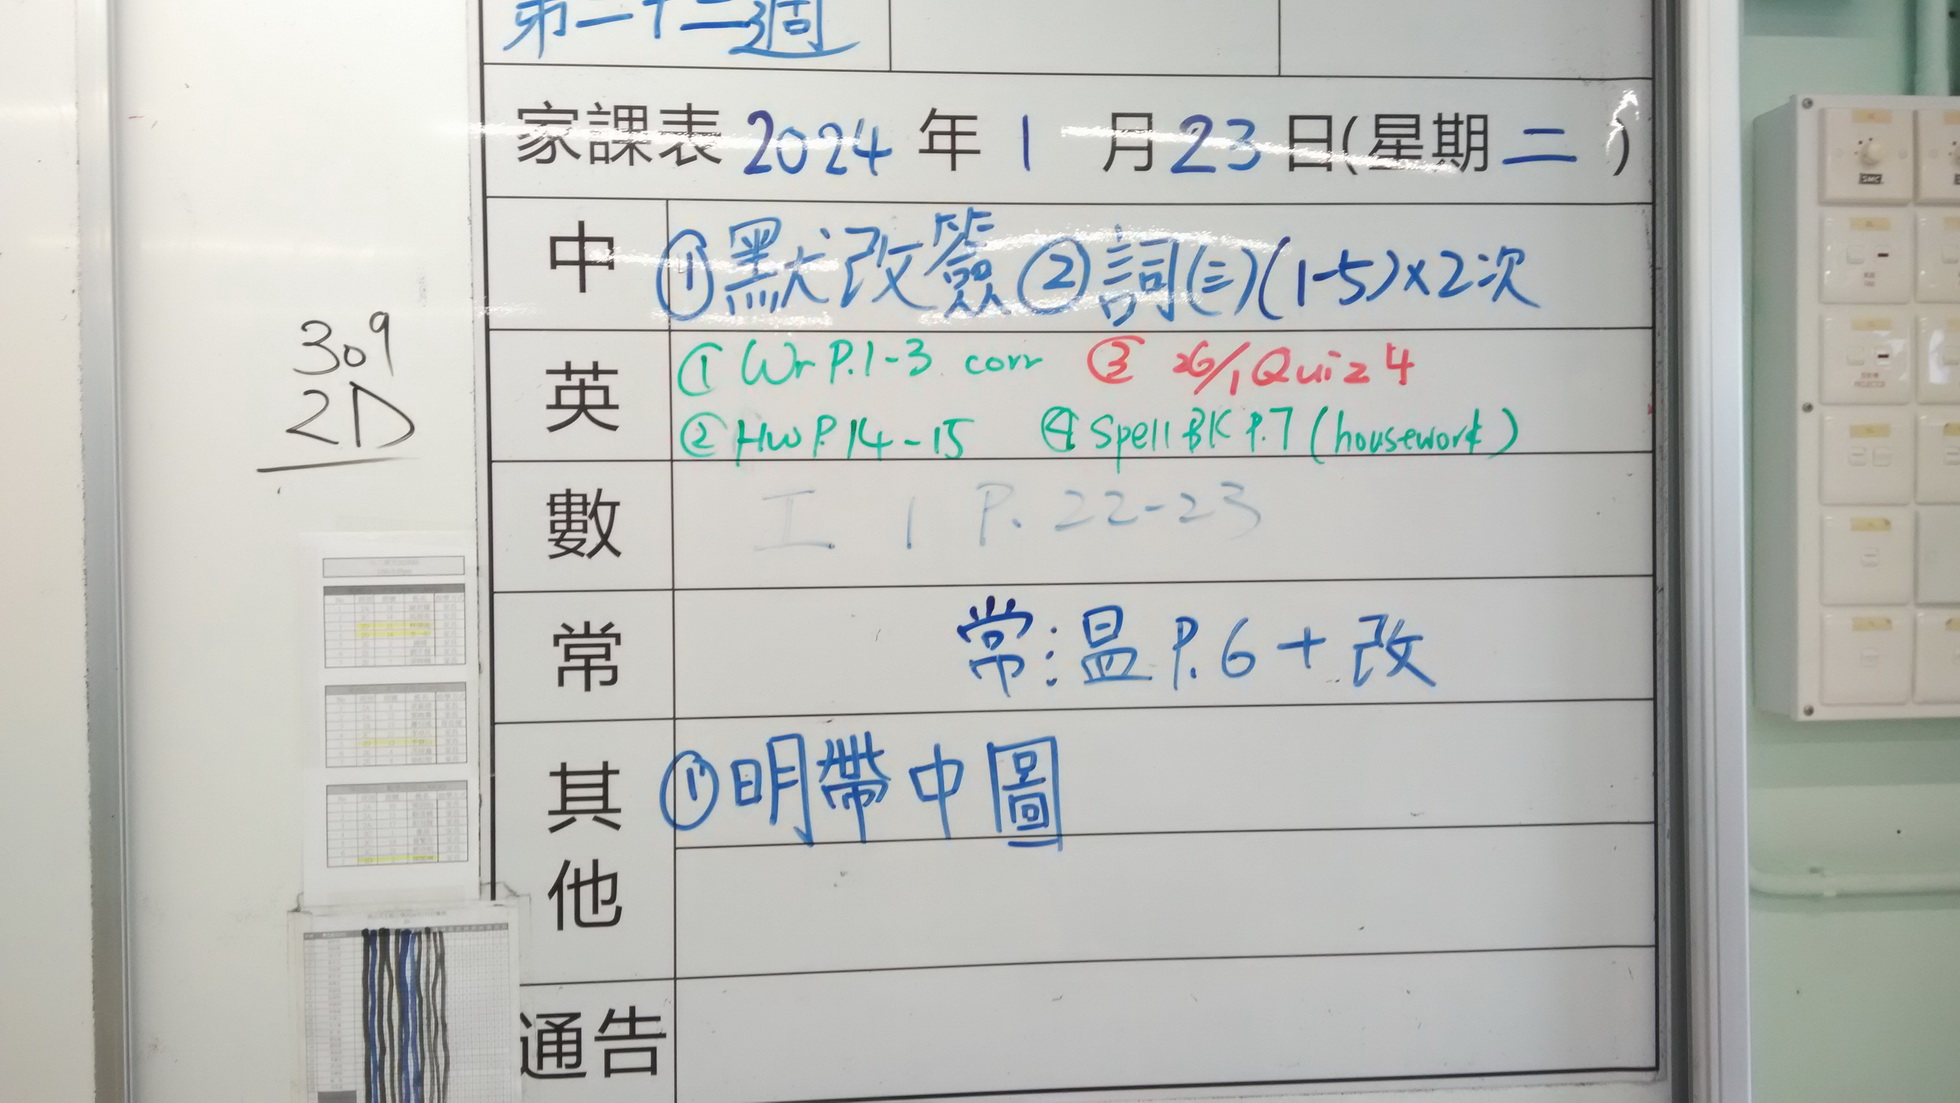 第二十二週
家課表 2024 年 1 月 23 日(星期 二 )
中 ①默改簽 ②詞(三)(1-5)×2次
英 ① Wr P.1-3 corr ③ 26/1 Quiz 4
② HW P.14-15 ④ Spell BK P.7 (housework)
數 工 1 P. 22-23
常 常:昷 P.6 + 改
其他 ①明帶中圖
通告
309
2D